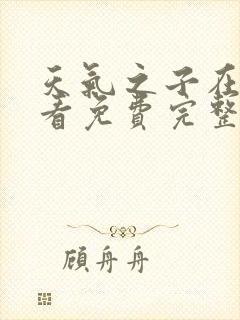 天氣之子在
看免費完整
顧舟舟